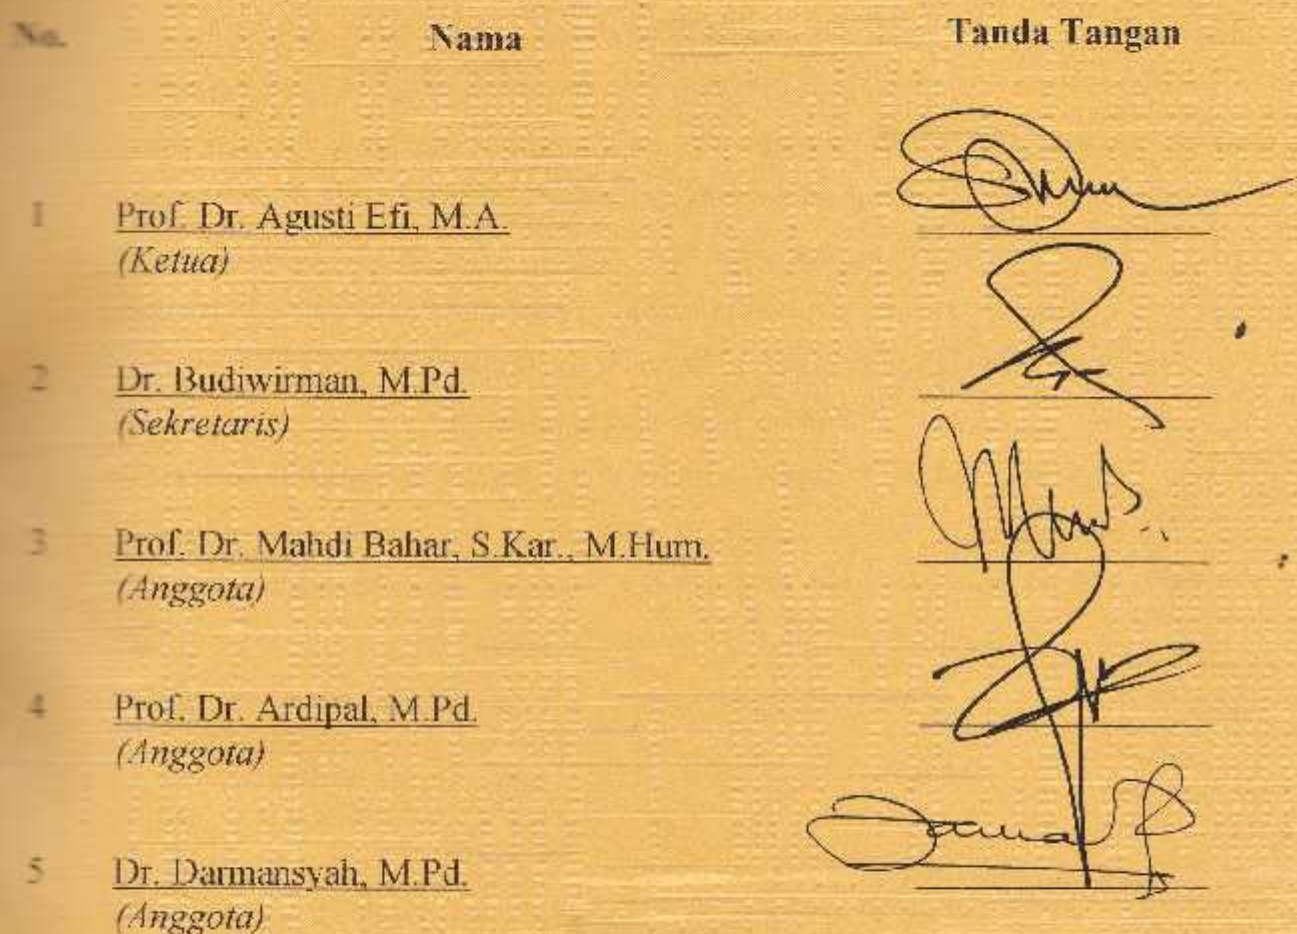 No. Nama Tanda Tangan
1 Prof. Dr. Agusti Efi, M.A.
(Ketua)
2 Dr. Budiwirman, M.Pd.
(Sekretaris)
3 Prof. Dr. Mahdi Bahar, S.Kar., M.Hum.
(Anggota)
4 Prof. Dr. Ardipal, M.Pd.
(Anggota)
5 Dr. Darmansyah, M.Pd.
(Anggota)